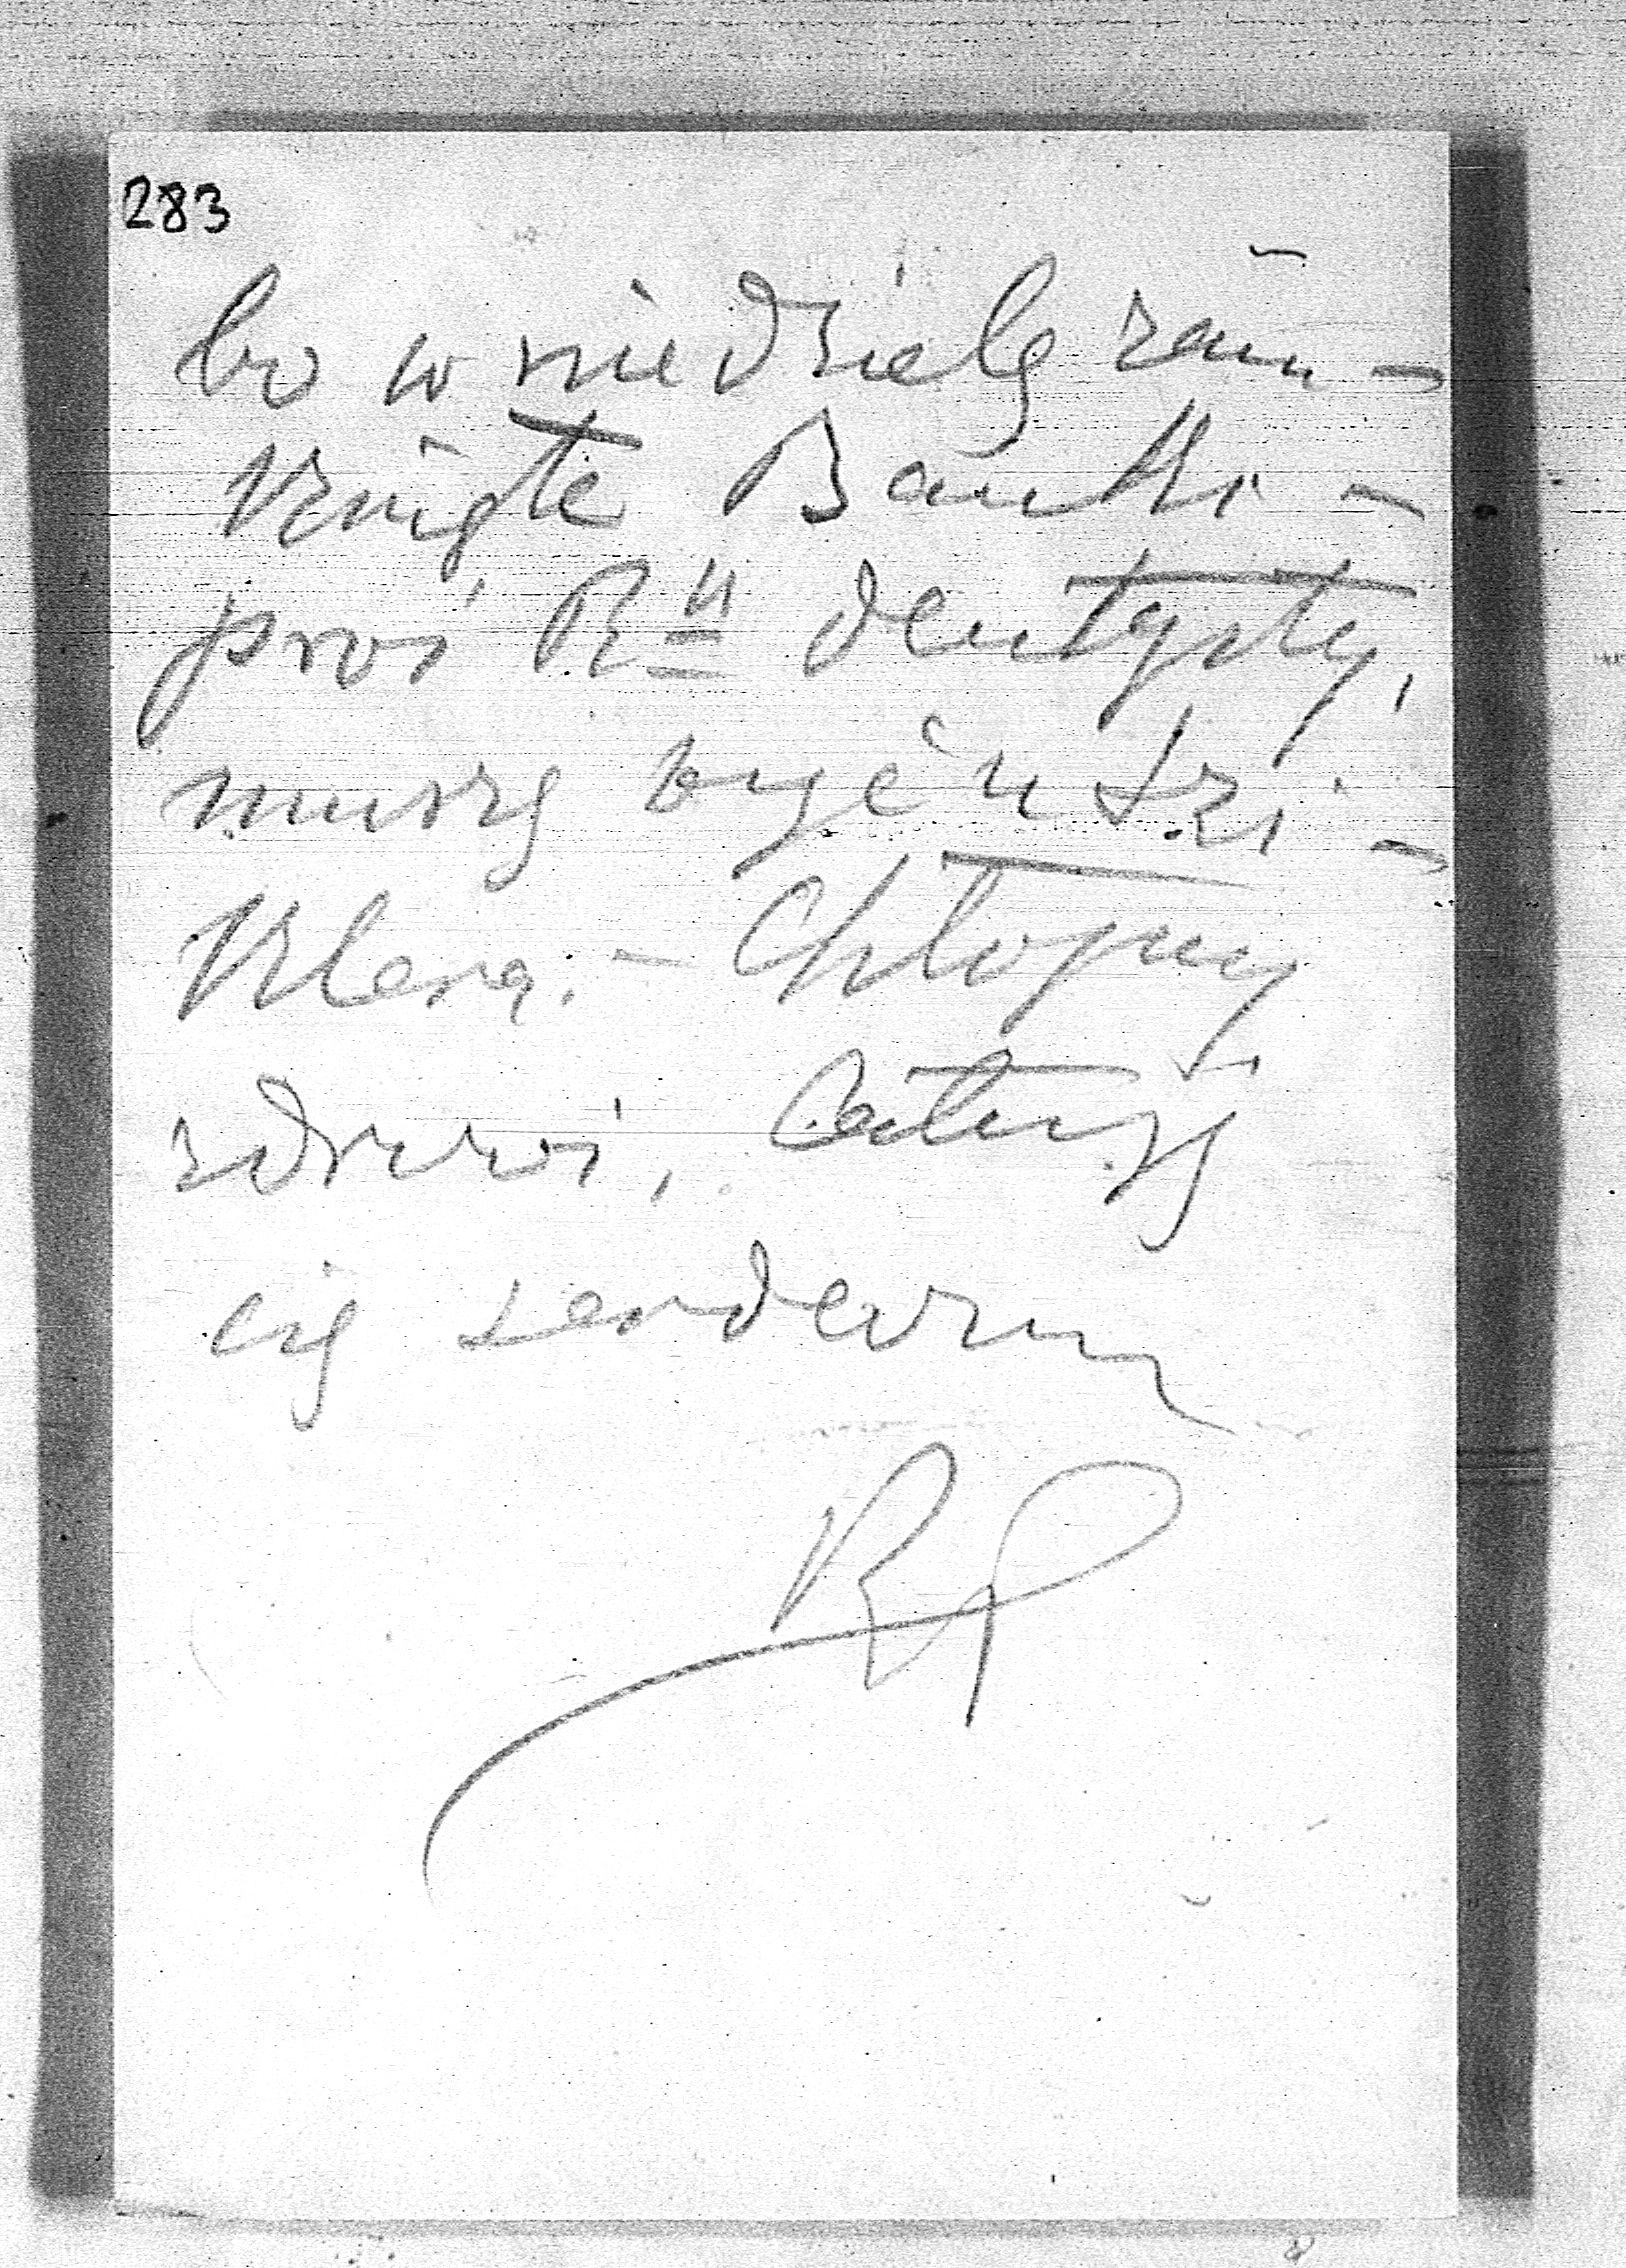 283
bo w niedzielę zam-
knięte Banki -
proś Rⁿ dentysty,
muszę być u
Chłopcy
zdrowi, Całuję
cię serdeczn
RP